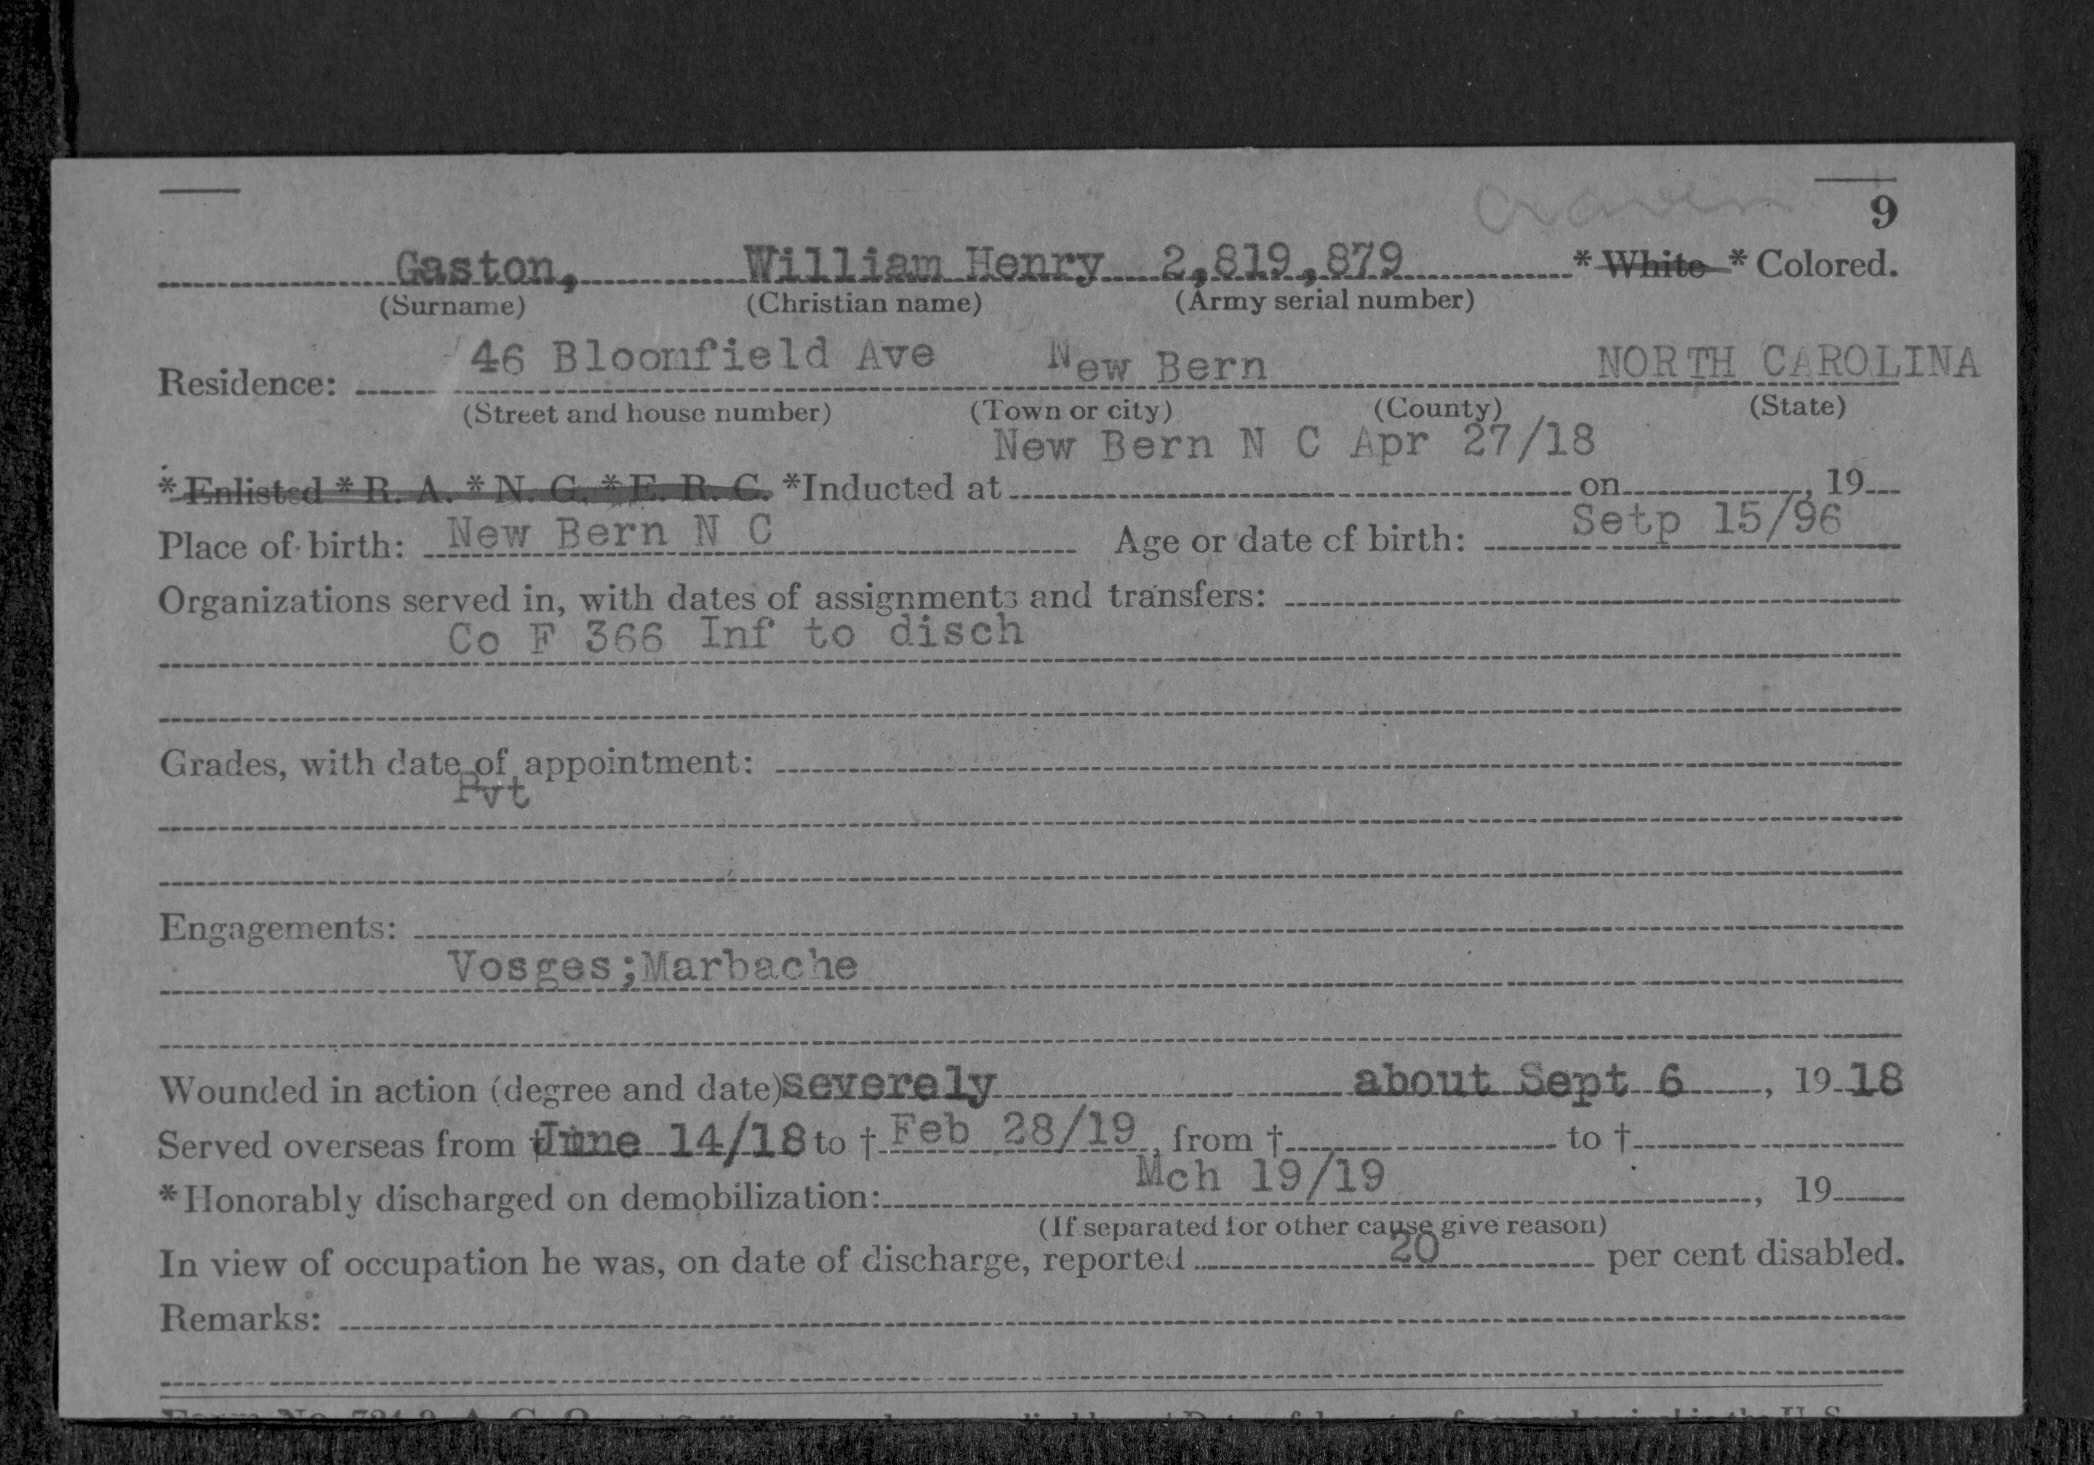 Craven
9
Gaston, William Henry 2,819,879 * White * Colored.
(Surname) (Christian name) (Army serial number)
46 Bloomfield Ave New Bern NORTH CAROLINA
Residence:
(Street and house number) (Town or city) (County) (State)
New Bern N C Apr 27/18
* Enlisted * R. A. * N. G. * E. R. C. *Inducted at on , 19
Place of birth: New Bern N C Age or date of birth: Setp 15/96
Organizations served in, with dates of assignments and transfers:
Co F 366 Inf to disch
Grades, with date of appointment:
Pvt
Engagements:
Vosges;Marbache
Wounded in action (degree and date) severely about Sept 6 , 19 18
Served overseas from † June 14/18 to † Feb 28/19 , from † to †
Mch 19/19
*Honorably discharged on demobilization: , 19
(If separated for other cause give reason)
In view of occupation he was, on date of discharge, reported 20 per cent disabled.
Remarks: